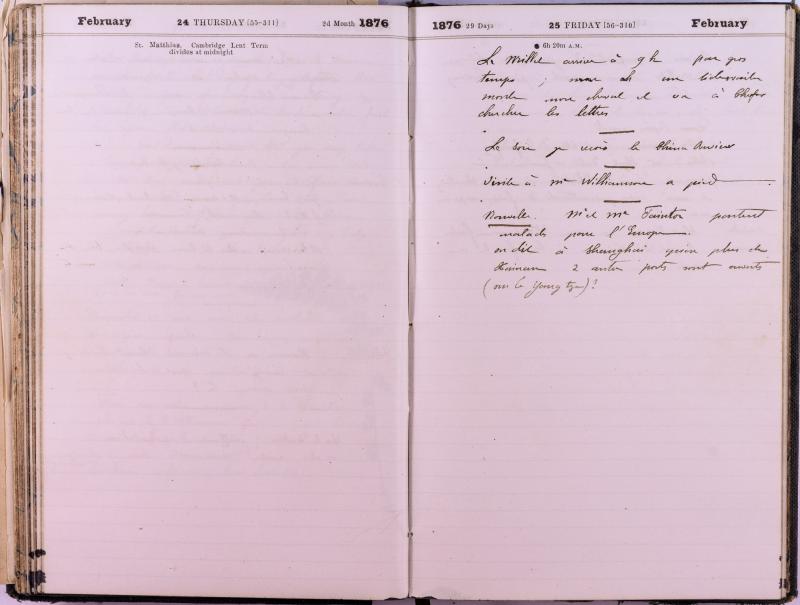 February 24 THURSDAY [55-311] 2d Month 1876
St. Matthias. Cambridge Lent Term
divides at midnight
1876 29 Days 25 FRIDAY [56-310] February
● 6h 20m A.M.
Le arrive à 9h par gros
temps ;
monte mon cheval et va à Chefoo
chercher les lettres
Le soir je le China
Visite à Mr Williamson a pied
Nouvelle. Mr et Me Taintor partent
malade pour l'Europe.
on dit à Shanghai plus de
2 autres ports sont ouverts
(sur le Yang tze)?